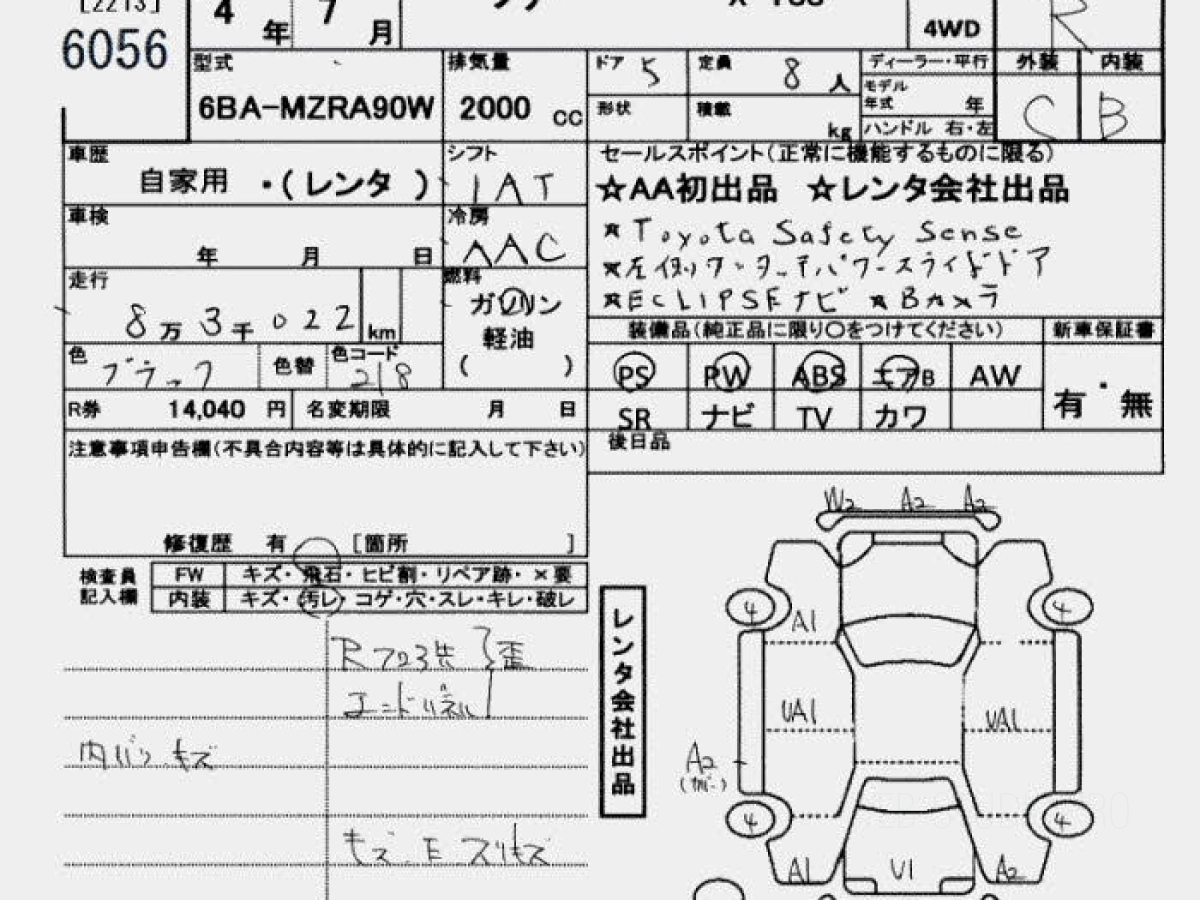 [2213]
6056
4 年 7 月
4WD
R
型式
6BA-MZRA90W
排気量
2000 cc
ドア 5
定員 8 人
形状
積載 kg
ディーラー・平行
モデル年式 年
ハンドル 右・左
外装 内装
C B
車歴
自家用 ・(レンタ )
シフト
IAT
セールスポイント(正常に機能するものに限る)
☆AA初出品 ☆レンタ会社出品
★Toyota Safety Sense
★左側ワンタッチパワースライドドア
★ECLIPSEナビ ★Bカメラ
車検
年 月 日
冷房
AAC
走行
8万 3千 022 km
燃料
ガソリン
軽油
( )
色 ブラック
色替
色コード 218
装備品(純正品に限り○をつけてください)
新車保証書
PS PW ABS エアB AW
SR ナビ TV カワ
有 ・ 無
R券 14,040 円
名変期限 月 日
後日品
注意事項申告欄(不具合内容等は具体的に記入して下さい)
修復歴 有 [箇所 ]
検査員記入欄
FW キズ・飛石・ヒビ割・リペア跡・×要
内装 キズ・汚レ・コゲ・穴・スレ・キレ・破レ
Rフロア先 歪
エンドパネル
内バリ キズ
レンタ会社出品
W2 A2 A2
4 4
A1
UA1 UA1
A2
(カバー)
4 4
A1 U1 A2